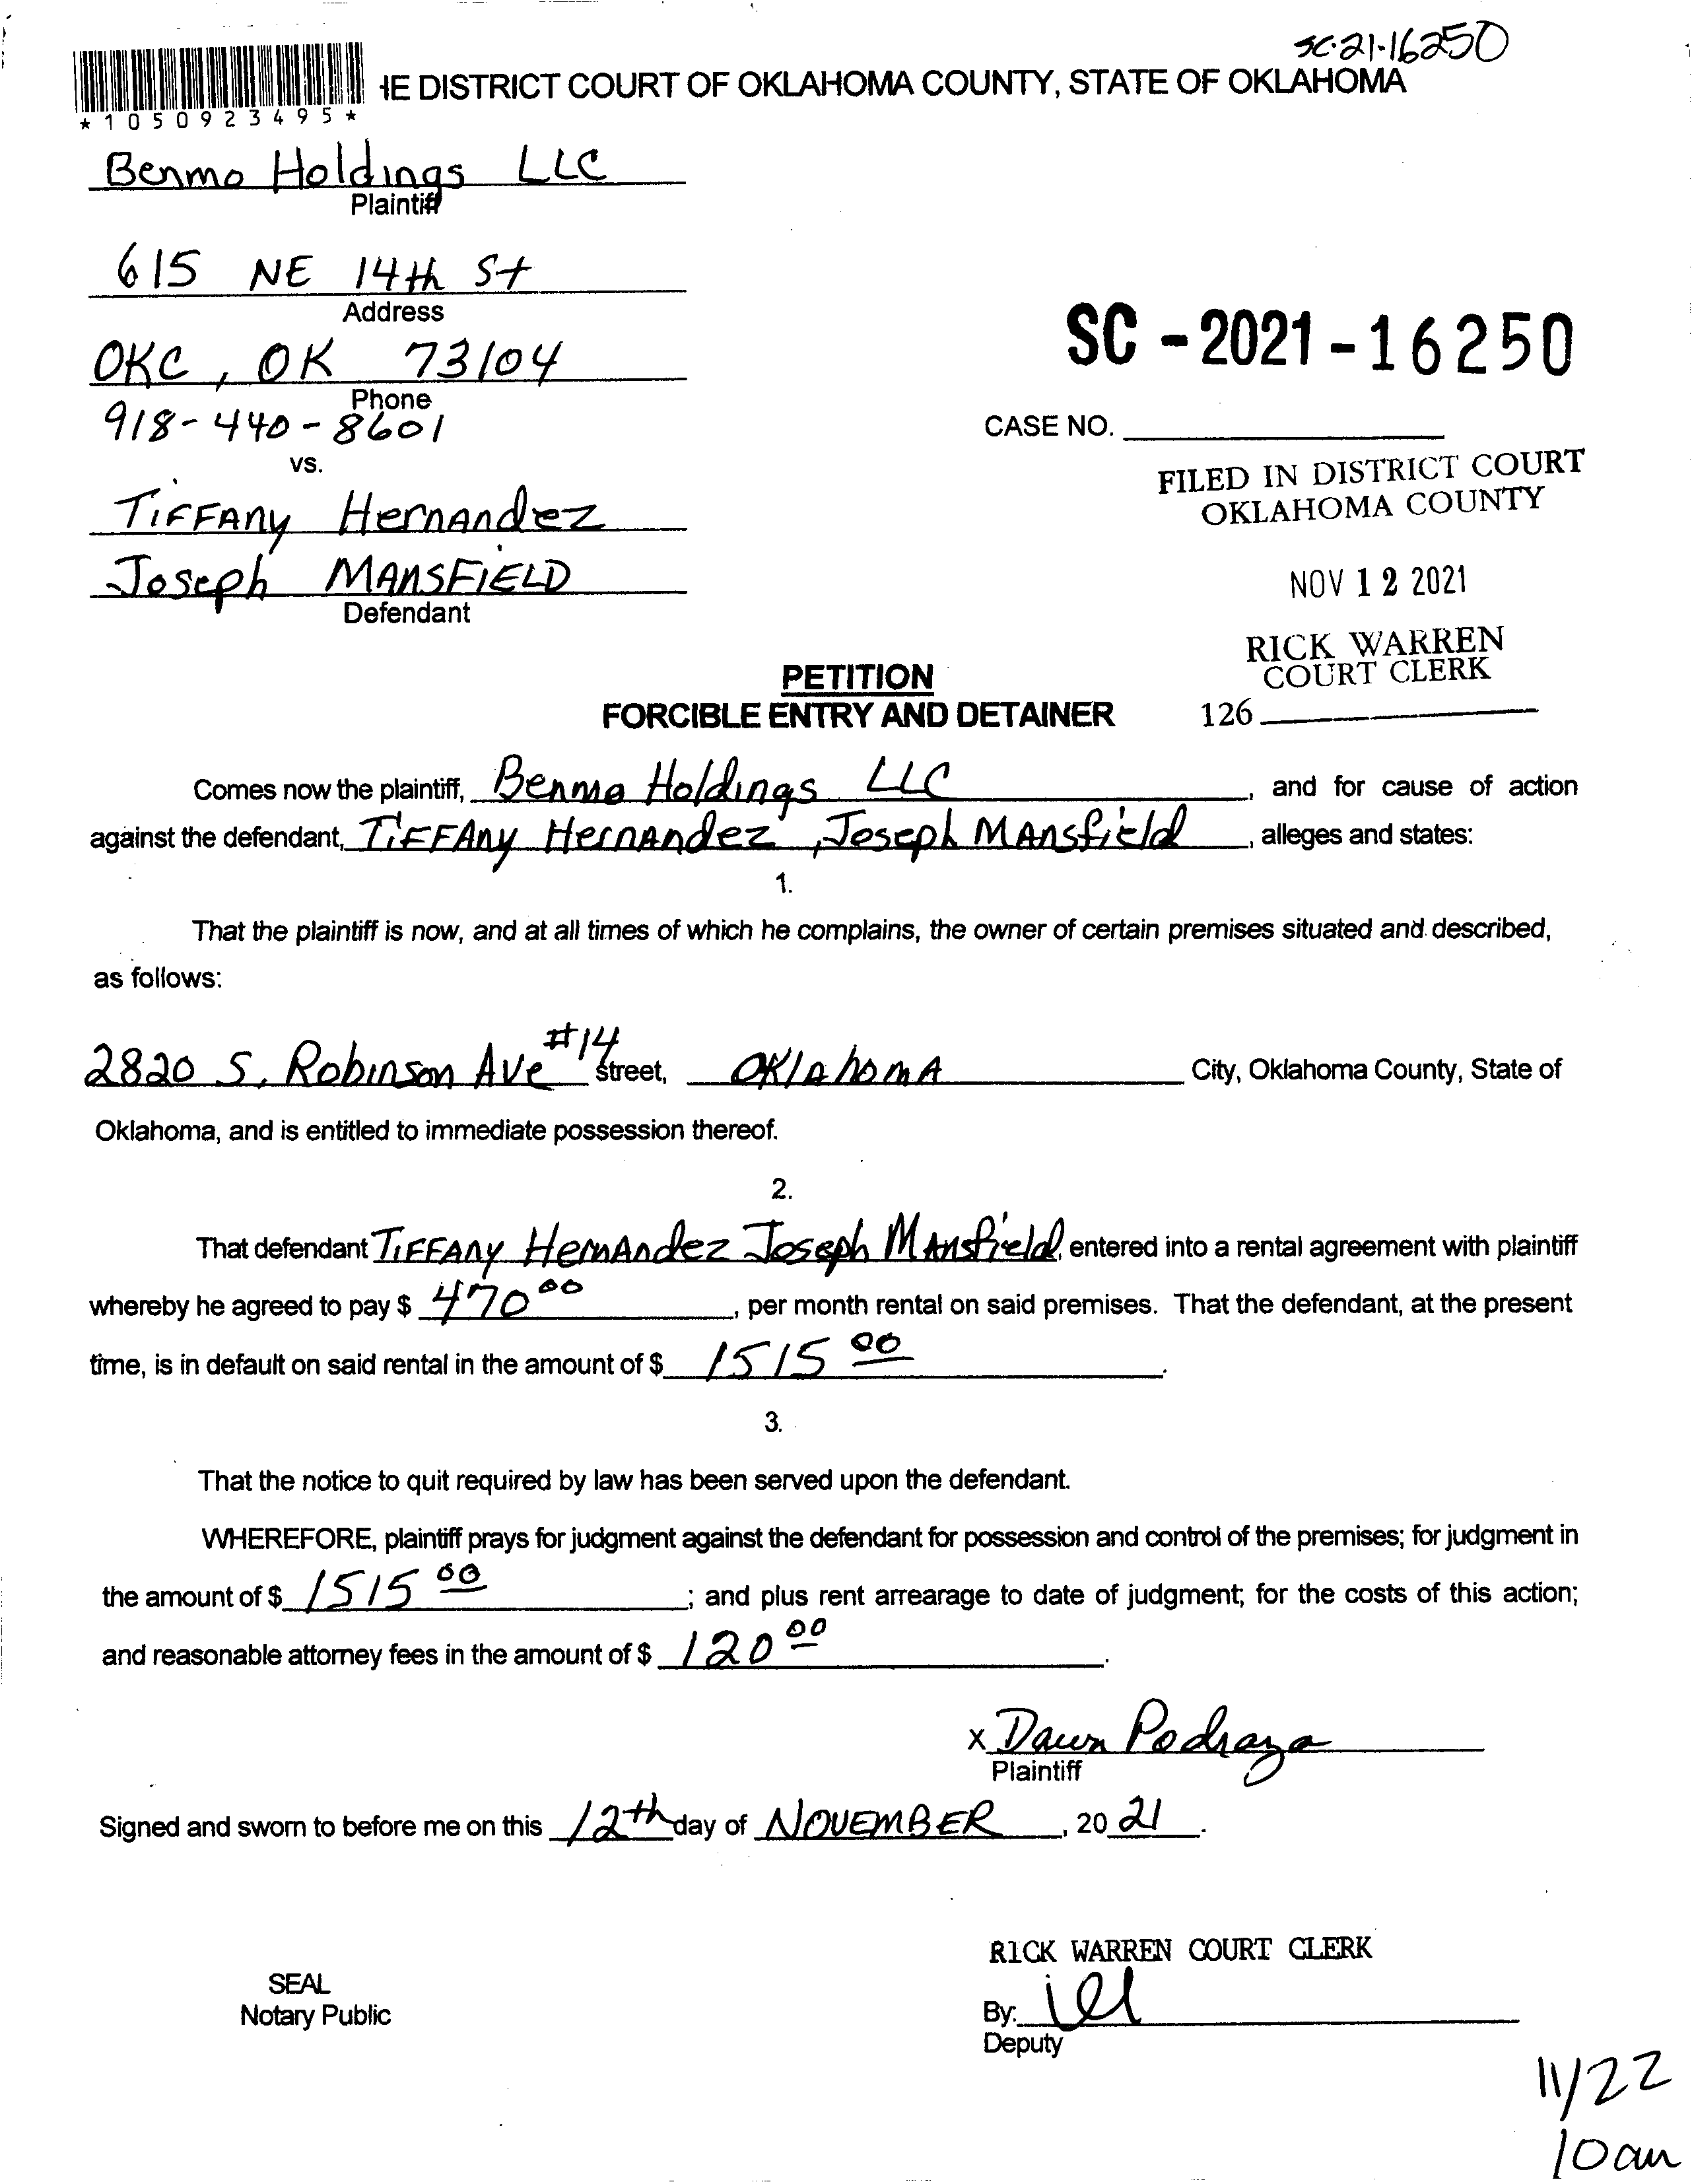 SC-21-16250
HE DISTRICT COURT OF OKLAHOMA COUNTY, STATE OF OKLAHOMA
*1050923495*
Benmo Holdings LLC
Plaintiff
615 NE 14th St
Address
SC-2021-16250
OKC, OK 73104
Phone
918-440-8601
CASE NO.
vs.
FILED IN DISTRICT COURT
OKLAHOMA COUNTY
Tiffany Hernandez
Joseph Mansfield
Defendant
NOV 12 2021
RICK WARREN
COURT CLERK
126
PETITION
FORCIBLE ENTRY AND DETAINER
Comes now the plaintiff, Benmo Holdings LLC, and for cause of action
against the defendant, Tiffany Hernandez, Joseph Mansfield, alleges and states:
1.
That the plaintiff is now, and at all times of which he complains, the owner of certain premises situated and described,
as follows:
2820 S. Robinson Ave #14 Street, Oklahoma City, Oklahoma County, State of
Oklahoma, and is entitled to immediate possession thereof.
2.
That defendant Tiffany Hernandez Joseph Mansfield, entered into a rental agreement with plaintiff
whereby he agreed to pay $ 470 00, per month rental on said premises. That the defendant, at the present
time, is in default on said rental in the amount of $ 1515 00.
3.
That the notice to quit required by law has been served upon the defendant.
WHEREFORE, plaintiff prays for judgment against the defendant for possession and control of the premises; for judgment in
the amount of $ 1515 00; and plus rent arrearage to date of judgment; for the costs of this action;
and reasonable attorney fees in the amount of $ 120 00.
X Dawn Podraza
Plaintiff
Signed and sworn to before me on this 12th day of NOVEMBER, 20 21.
RICK WARREN COURT CLERK
SEAL
Notary Public
By:
Deputy
11/22
10am